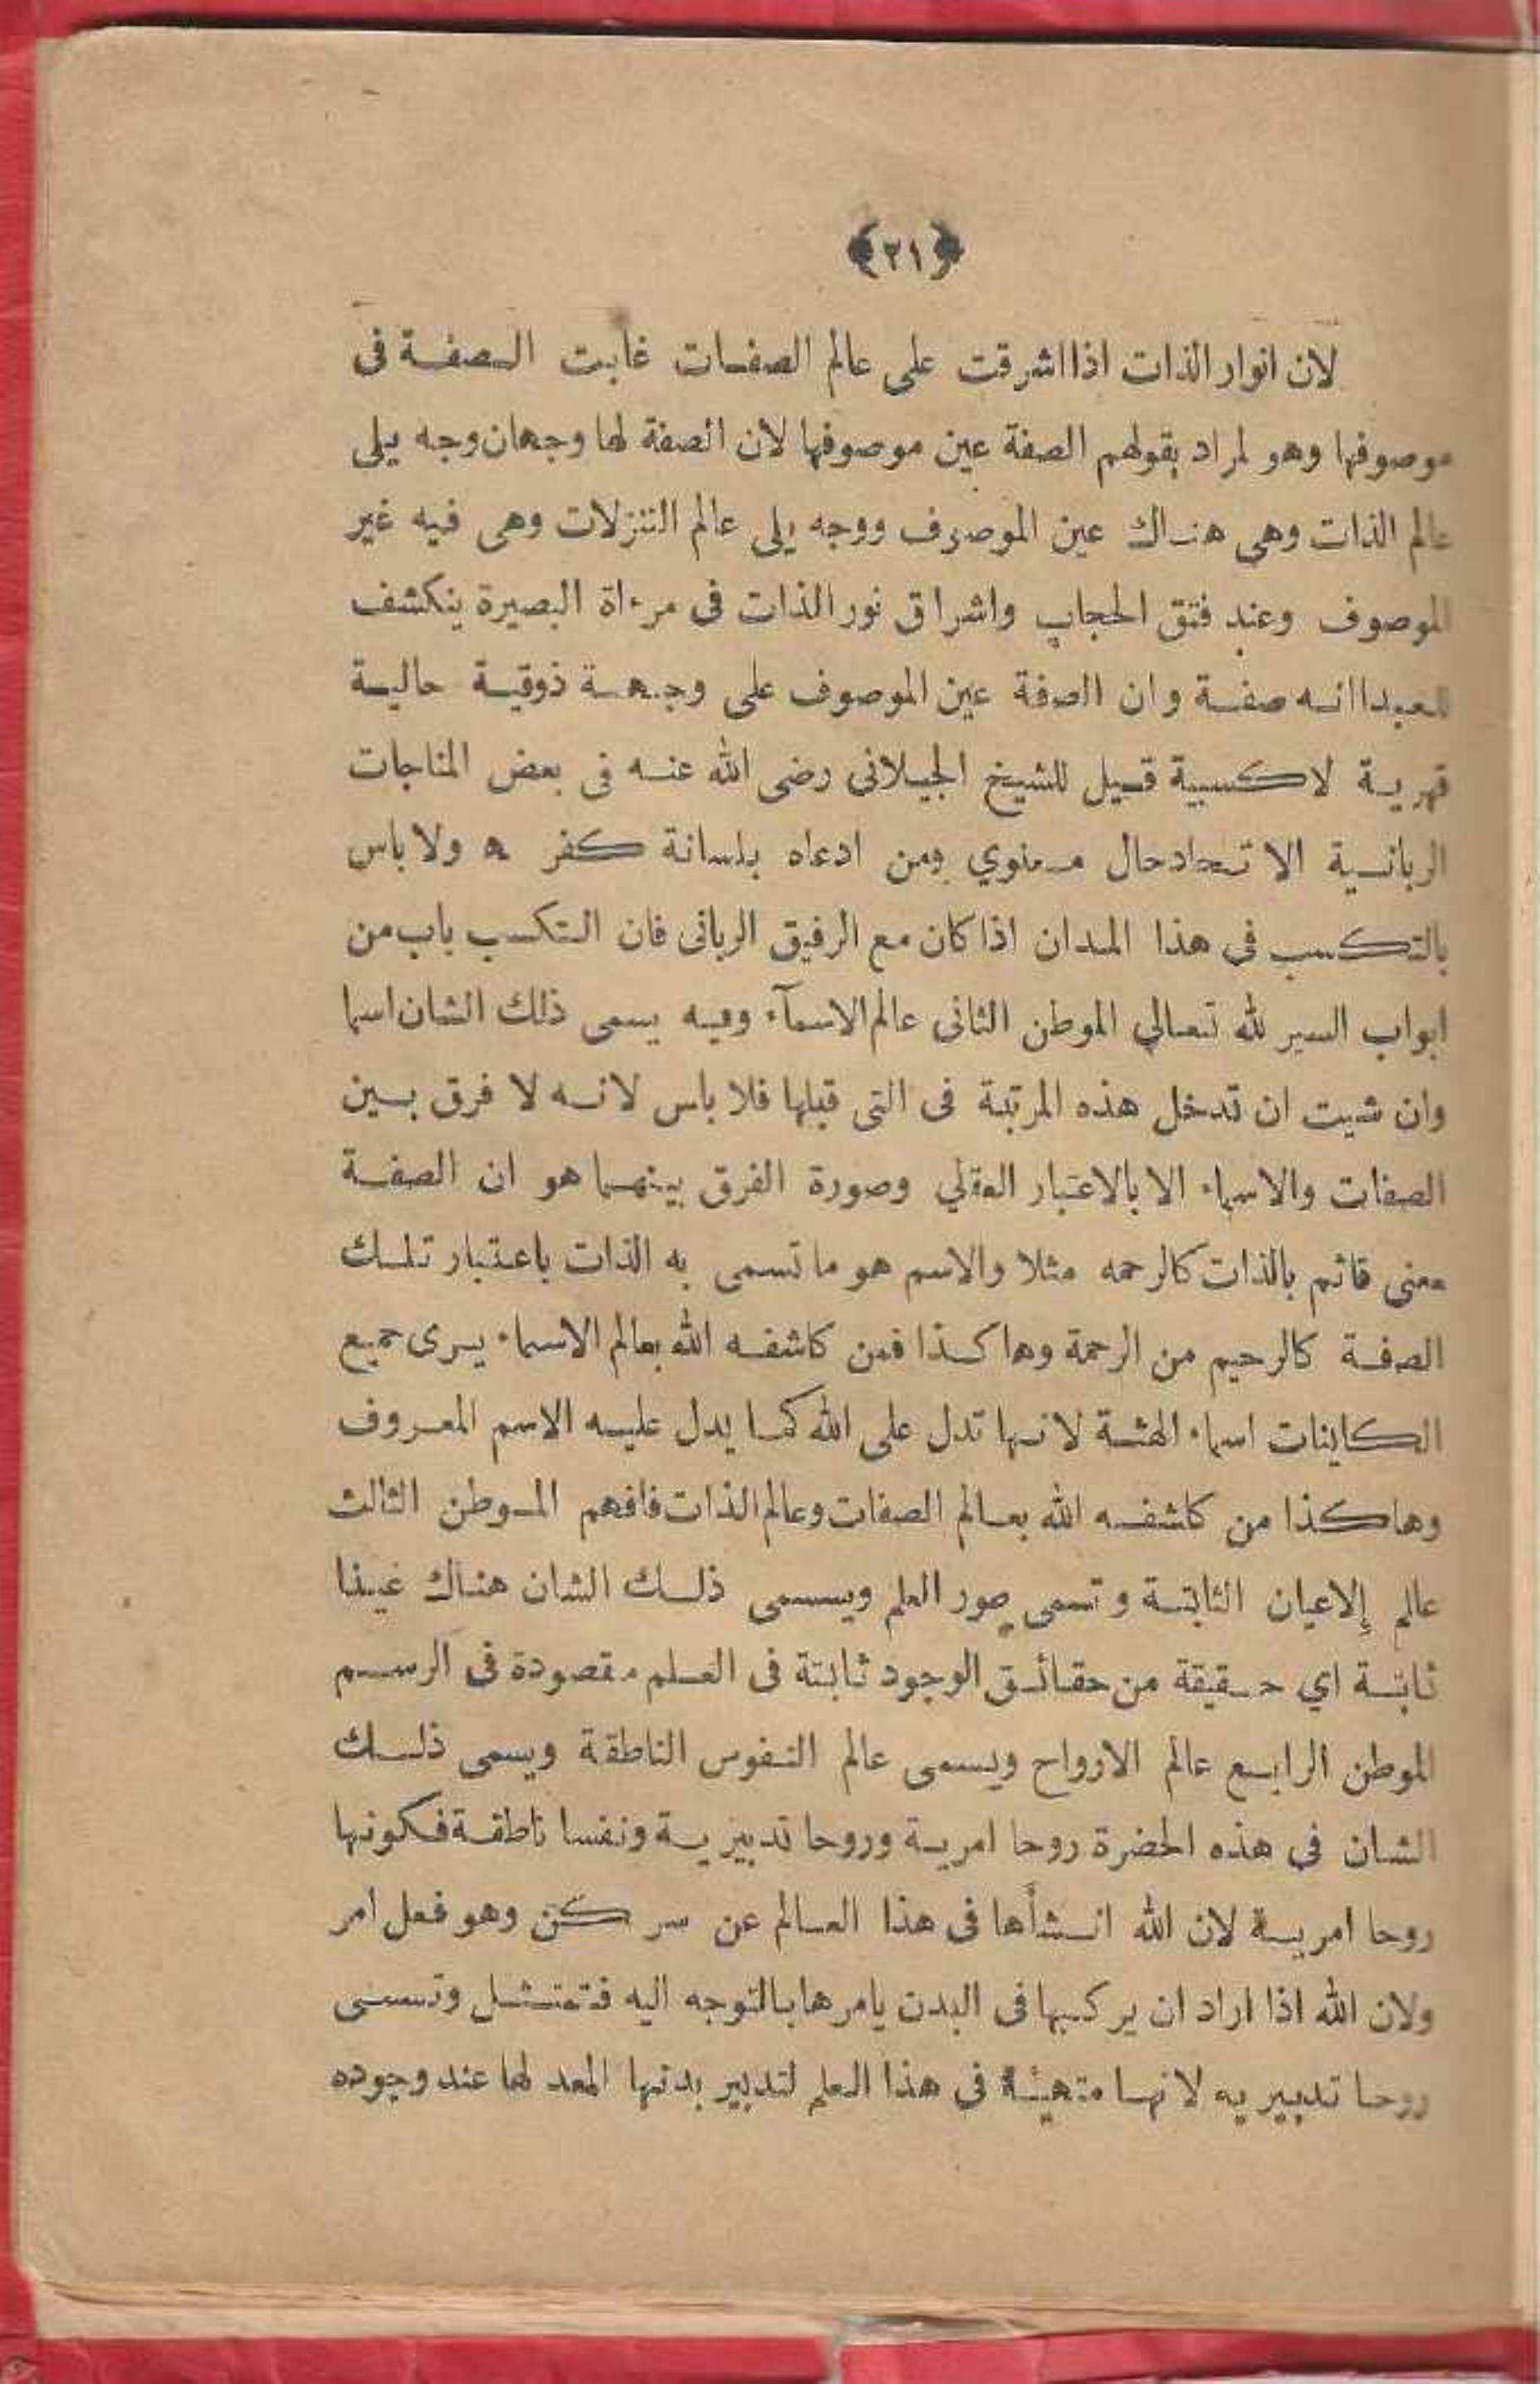 ﴿٢١﴾
لان انوار الذات اذا اشرقت على عالم الصفات غابت الصفة فى
موصوفها وهو لمراد بقولهم الصفة عين موصوفها لان الصفة لها وجهان وجه يلى
عالم الذات وهى هناك عين الموصوف ووجه يلى عالم التنزلات وهى فيه غير
الموصوف وعند فتق الحجاب واشراق نور الذات فى مرءاة البصيرة ينكشف
للعبد اانه صفة وان الصفة عين الموصوف على وجهة ذوقية حالية
قهرية لا كسبية قيل للشيخ الجيلانى رضى الله عنه فى بعض المناجات
الربانية الا تحاد حال معنوي ومن ادعاه بلسانة كفر ه ولا باس
بالتكسب فى هذا المدان اذا كان مع الرفيق الربانى فان التكسب باب من
ابواب السير لله تعالي الموطن الثانى عالم الاسمآء وفيه يسمى ذلك الشان اسما
وان شيت ان تدخل هذه المرتبة فى التى قبلها فلا باس لانه لا فرق بين
الصفات والاسماء الا بالاعتبار العقلي وصورة الفرق بينهما هو ان الصفة
معنى قائم بالذات كالرحمه مثلا والاسم هو ما تسمى به الذات باعتبار تلك
الصفة كالرحيم من الرحمة وها كذا فمن كاشفه الله بعالم الاسماء يرى جميع
الكاينات اسماء الهئة لانها تدل على الله كما يدل عليه الاسم المعروف
وها كذا من كاشفه الله بعالم الصفات وعالم الذات فافهم الموطن الثالث
عالم الاعيان الثابتة وتسمى صور العلم ويسمى ذلك الشان هناك عينا
ثابتة اي حقيقة من حقائق الوجود ثابتة فى العلم مقصودة فى الرسم
الموطن الرابع عالم الارواح ويسمى عالم النفوس الناطقة ويسمى ذلك
الشان فى هذه الحضرة روحا امرية وروحا تدبيرية ونفسا ناطقة فكونها
روحا امرية لان الله انشأها فى هذا العالم عن سر كن وهو فعل امر
ولان الله اذا اراد ان يركبها فى البدن يامرها بالتوجه اليه فتمتثل وتسمى
روحا تدبيريه لانها متهيئة فى هذا العلم لتدبير بدنها المعد لها عند وجوده